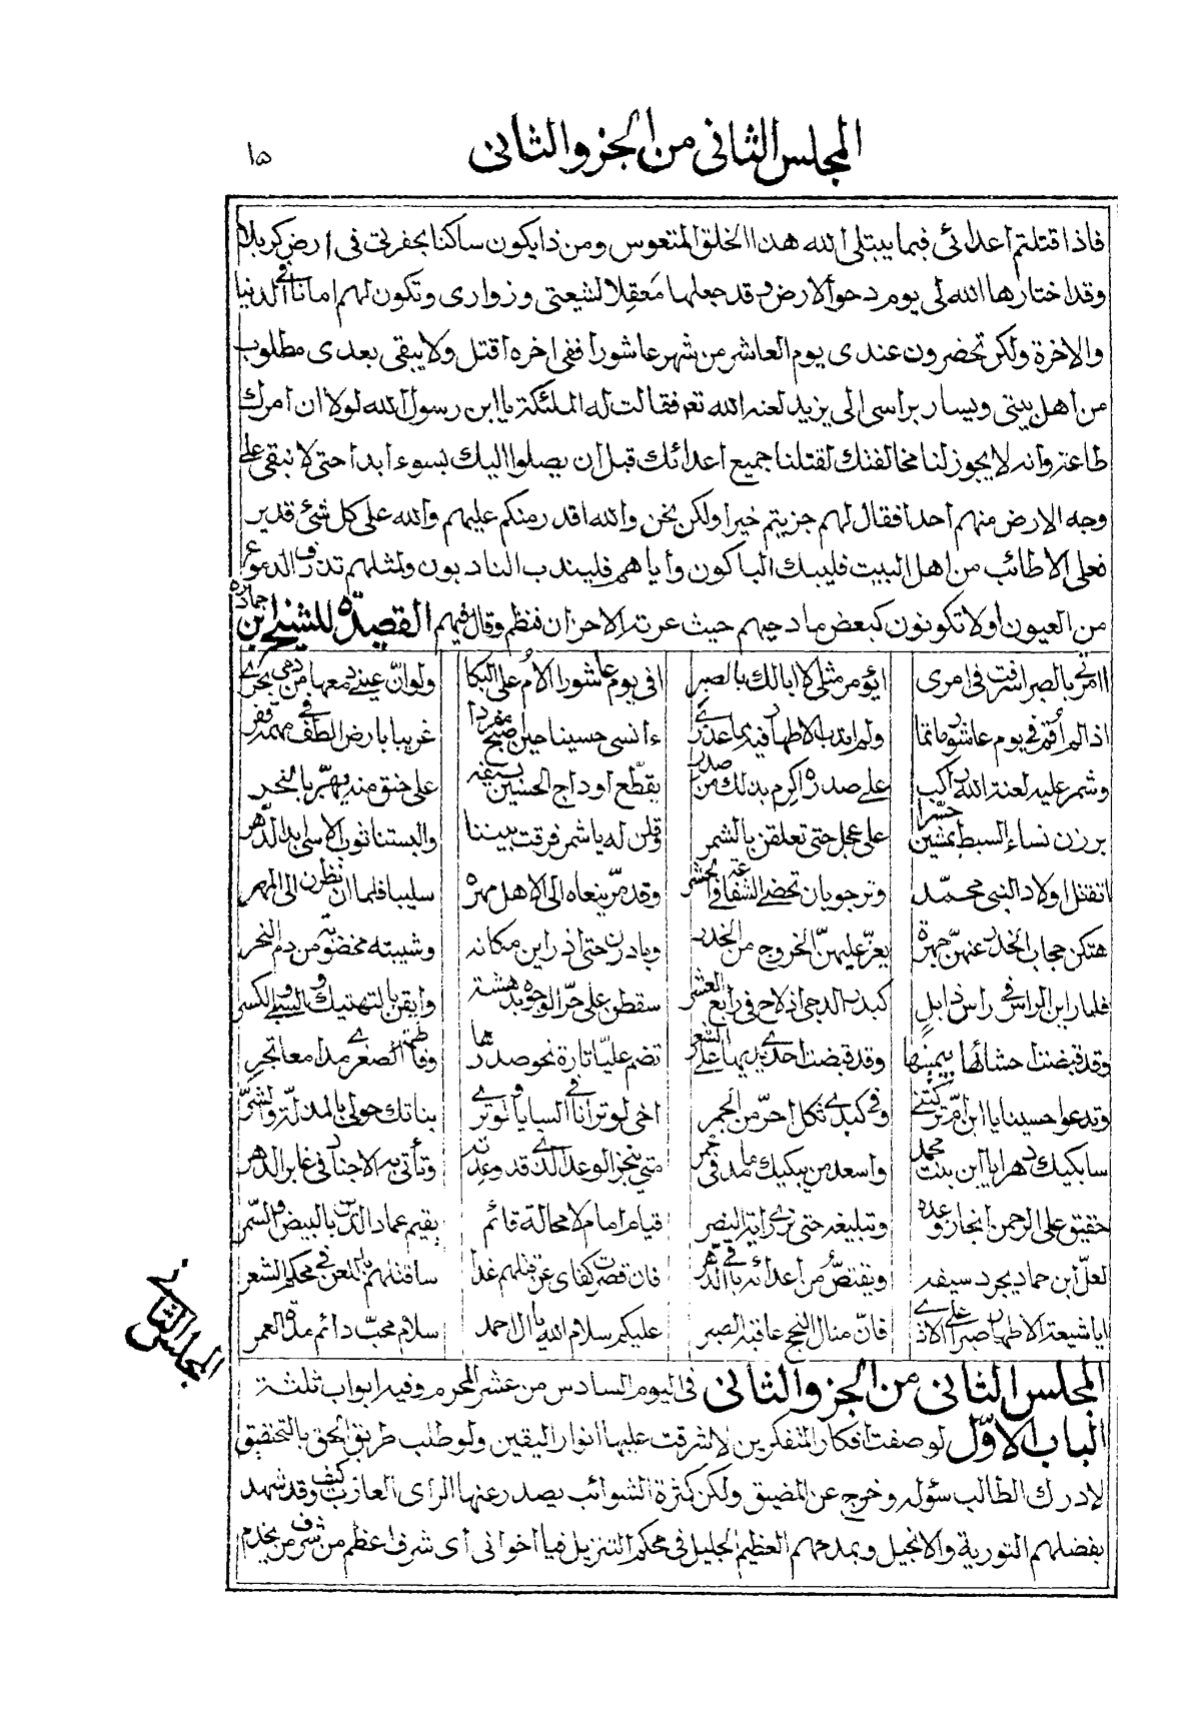 المجلس الثانی من الجزو الثانی
١٥
فاذا قتلتم اعدائی فبما یبتلی الله هذا الخلق المتعوس ومن ذا یکون ساکنا بحفرتی فی ارض کربلا
وقد اختارها الله لی یوم دحو الارض وقد جعلها مَعقِلا لشیعتی وزواری وتکون لهم امانا فی الدنیا
والاخرة ولکن تحضرون عندی یوم العاشر من شهر عاشورا ففی اخره اقتل ولا یبقی بعدی مطلوب
من اهل بیتی ویسار براسی الی یزید لعنه الله تع فقالت له الملئکة یا ابن رسول الله لولا ان امرک
طاعة وانه لا یجوز لنا مخالفتک لقتلنا جمیع اعدائک قبل ان یصلوا الیک بسوء ابدا حتی لا نبقی علی
وجه الارض منهم احدا فقال لهم جزیتم خیرا ولکن نحن والله اقدر منکم علیهم والله علی کل شئ قدیر
فعلی الاطائب من اهل البیت فلیبک الباکون وأیاهم فلیندب النادبون ولمثلهم تذرف الدموع
من العیون اولا تکونون کبعض مادحیهم حیث عرته الاحزان فنظم وقال فیهم القصیده للشیخ ابن حماد ره
اامر بالصبر اسرفت فی امری ایؤمر مثلی لا ابا لک بالصبر افی یوم عاشورا الأم علی البکا ولو انّ عینی دمعها من دمی یجری
اذا لم أقم فی یوم عاشور ماتما ولم اندب الاطهار فیه فما عذری ءانسی حسینا حین اصبح مفردا غریبا بارض الطف فی مهمه قفر
وشمر علیه لعنة الله راکب علی صدره اکرم بذلک من صدر یقطّع اوداج الحسین بسیفه علی حنق منه ینهر بالنحر
برزن نساء السبط یمشین حسّرا علی عجل حتی تعلقن بالشمر وقلن له یا شمر فرقت بیننا والبستنا ثوب الاسی ابد الدهر
اتقتل اولاد النبی محمّد وترجو بان تحضی الشفاعة فی الحشر وقد مرّ ینعاه الی الاهل مهره سلیبا فلما ان نظرن الی المهر
هتکن حجاب الخدر عنهنّ جهرة یعزّ علیهنّ الخروج من الخدر وبادرن حتی اذ راین مکانه وشیبته مخضوبة من دم النحر
فلما راین الراس فی راس ذابلٍ کبدر الدجی اذ لاح فی رابع العشر سقطن علی حرّ الوجوه بدهشة وایقن بالتهتیک والسبی والکسر
وقد قبضت احشائها بیمینها وقد قبضت احدی یدیها علی الشعر تضم علیّا تارة نحو صدرها وفاطمة الصغری مدامعا تجر
وتدعوا حسینا یا ابن امّ ترکتنی وفی کبدی ثکل احرّ من الجمر اخی لو ترانا فی السبایا ولو تری بناتک حولی بالمذلّة والشرّ
سابکیک دهرا یا ابن بنت محمد واسعد من یبکیک ما مد فی عمر متی ینجز الوعد الذی قد وعدته وتأتی به الاخبار فی غابر الدهر
حقیق علی الرحمن انجاز وعده وتبلیغه حتی نری رایة النصر قیام امام لا محالة قائم یقیم عماد الدین بالبیض والسّمر
لعلّ ابن حماد یجرد سیفه ویقتصّ من اعدائه باقی الدهر فان قصرت کفای عن قتلهم غدا ساقتلهم باللعن فی محکم الشعر
ایا شیعة الاطهار صبرا علی الاذی فانّ منال النجح عاقبة الصبر علیکم سلام الله یا ال احمد سلام محبّ دائم مدّة العمر
المجلس الثانی
المجلس الثانی من الجزو الثانی فی الیوم السادس من عشر المحرم وفیه ابواب ثلثة
الباب الاوّل لو صفت افکار المتفکرین لاشرقت علیها انوار الیقین ولو طلب طریق الحق بالتحقیق
لادرک الطالب سؤله وخرج عن المضیق ولکن کثرة الشوائب یصدر عنها الرای العازب کیف وقد شهد
بفضلهم التوریة والانجیل وبمدحهم العظیم الجلیل فی محکم التنزیل فیا اخوانی أی شرف اعظم من شرف من یخدم